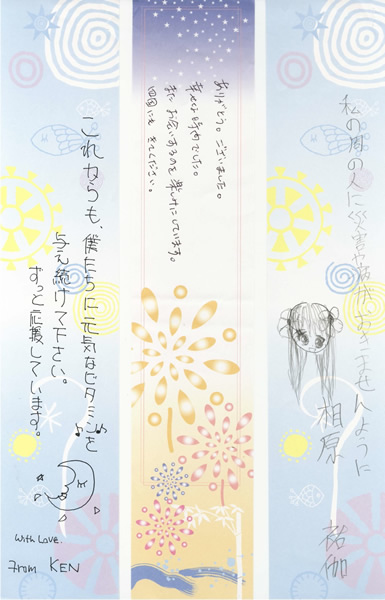 私の周りの人に災害や病が、おきませんように
相原
ありがとう。ございました。
幸せな時間でした。
またお会いするのを楽しみにしています。
四国にもきてください。
これからも、僕たちに元気なビタミンを
与え続けて下さい。
ずっと応援しています。
with Love.
From KEN